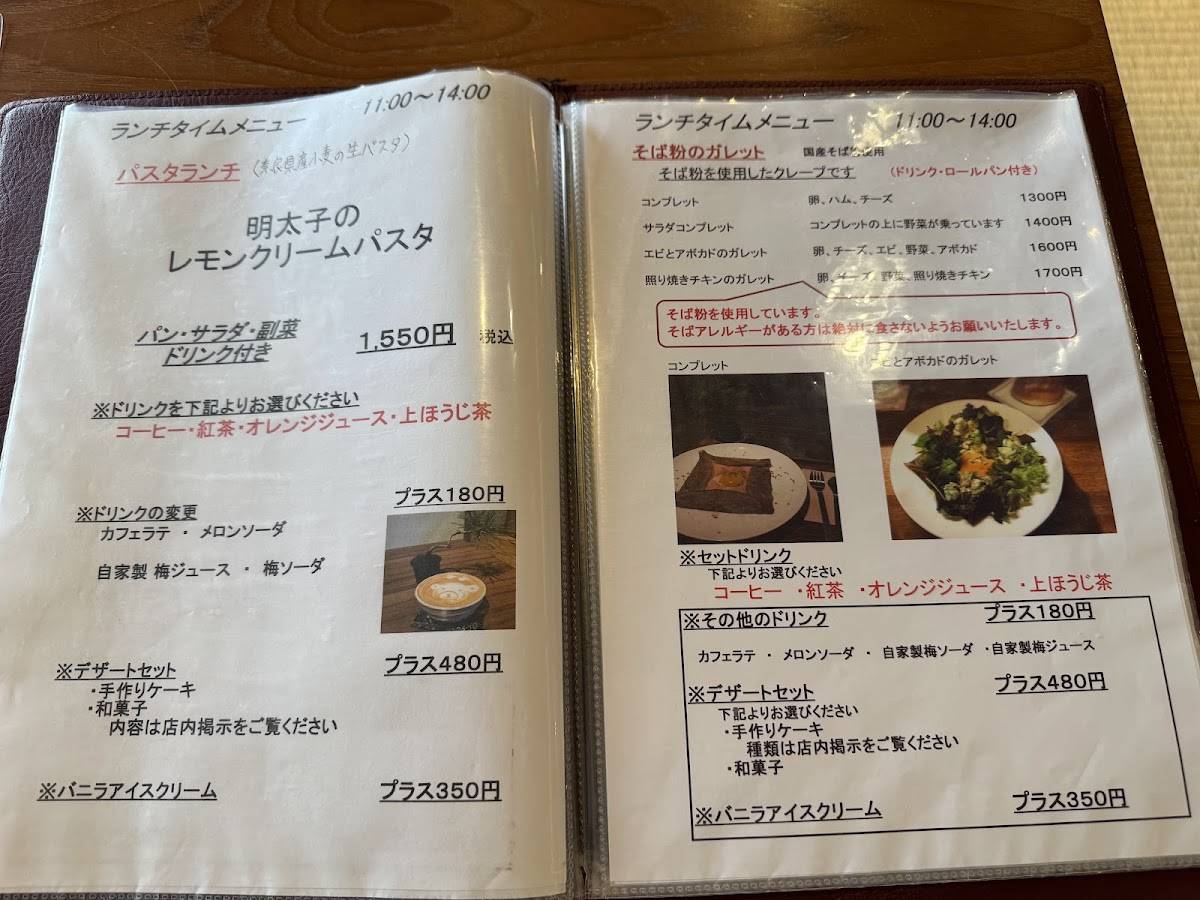 ランチタイムメニュー 11:00～14:00
パスタランチ (奈良県産小麦の生パスタ)
明太子の
レモンクリームパスタ
パン・サラダ・副菜
ドリンク付き
1,550円 税込
※ドリンクを下記よりお選びください
コーヒー・紅茶・オレンジジュース・上ほうじ茶
※ドリンクの変更 プラス180円
カフェラテ ・ メロンソーダ
自家製 梅ジュース ・ 梅ソーダ
※デザートセット プラス480円
・手作りケーキ
・和菓子
内容は店内掲示をご覧ください
※バニラアイスクリーム プラス350円
ランチタイムメニュー 11:00～14:00
そば粉のガレット 国産そば粉使用
そば粉を使用したクレープです (ドリンク・ロールパン付き)
コンプレット 卵、ハム、チーズ 1300円
サラダコンプレット コンプレットの上に野菜が乗っています 1400円
エビとアボカドのガレット 卵、チーズ、エビ、野菜、アボカド 1600円
照り焼きチキンのガレット 卵、チーズ、野菜、照り焼きチキン 1700円
そば粉を使用しています。
そばアレルギーがある方は絶対に食さないようお願いいたします。
コンプレット エビとアボカドのガレット
※セットドリンク
下記よりお選びください
コーヒー ・紅茶 ・オレンジジュース ・上ほうじ茶
※その他のドリンク プラス180円
カフェラテ ・ メロンソーダ ・ 自家製梅ソーダ ・自家製梅ジュース
※デザートセット プラス480円
下記よりお選びください
・手作りケーキ
種類は店内掲示をご覧ください
・和菓子
※バニラアイスクリーム プラス350円